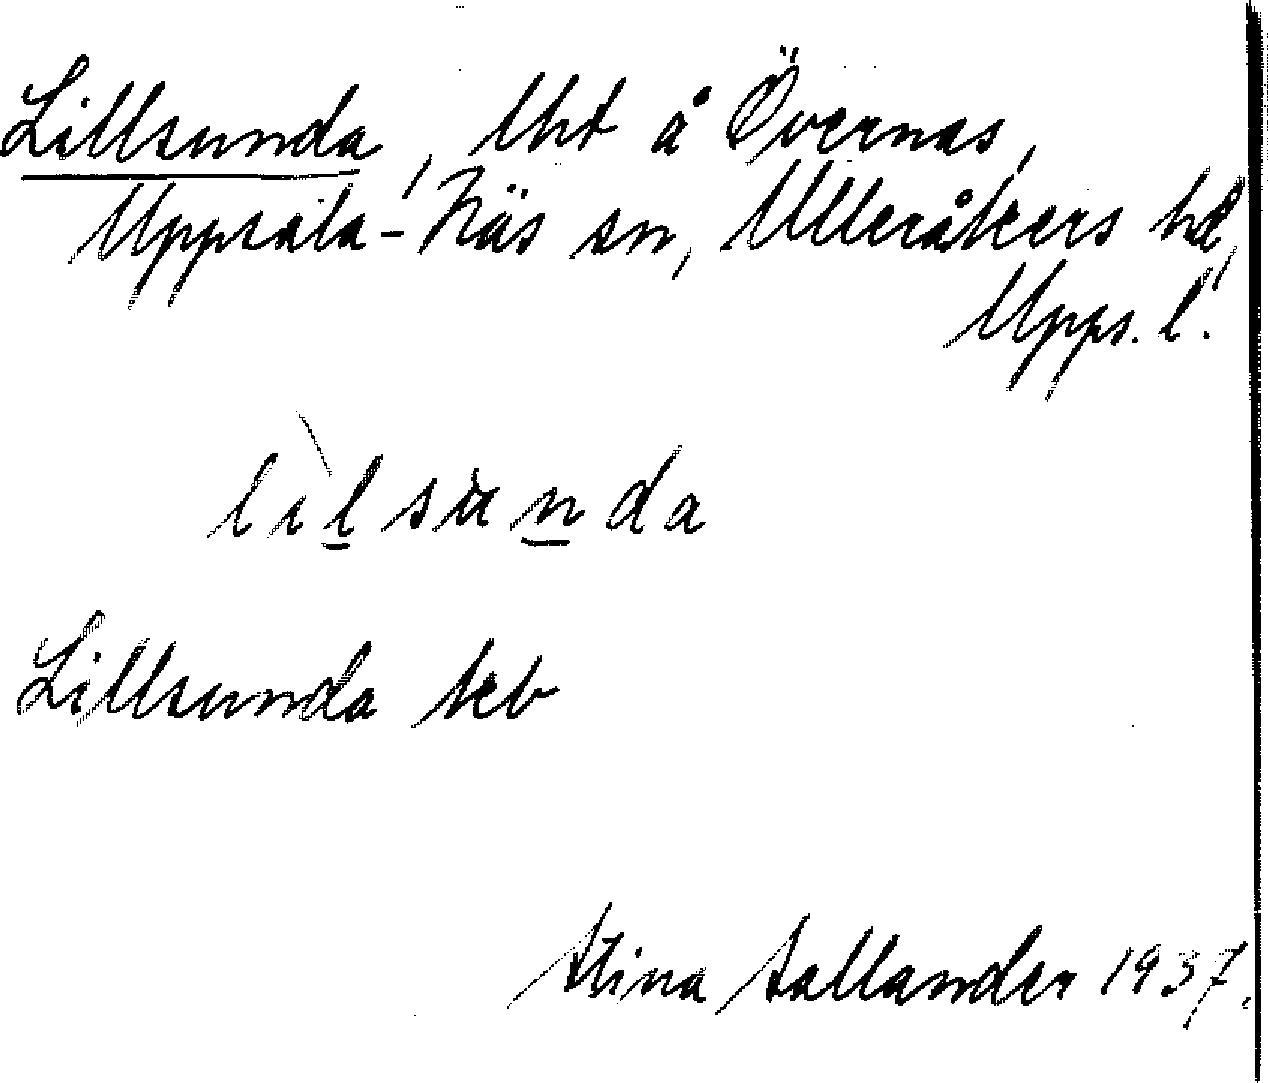 Lillsunda, lht å Övernäs,
Uppsala-Näs sn, Ulleråkers hd,
Upps. l.
lìlsùnda
Lillsunda keb
Stina Sallander 1937.